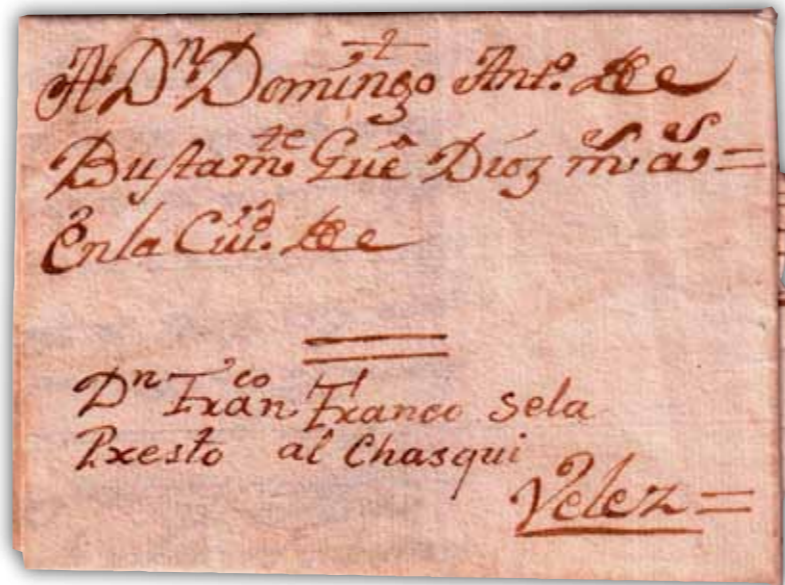 A Dn Domingo Anto. de
Bustamte. Gue Dios ms. as. =
En la Ciud. de
Dn Franco. Franco sela
Presto al Chasqui
Velez =